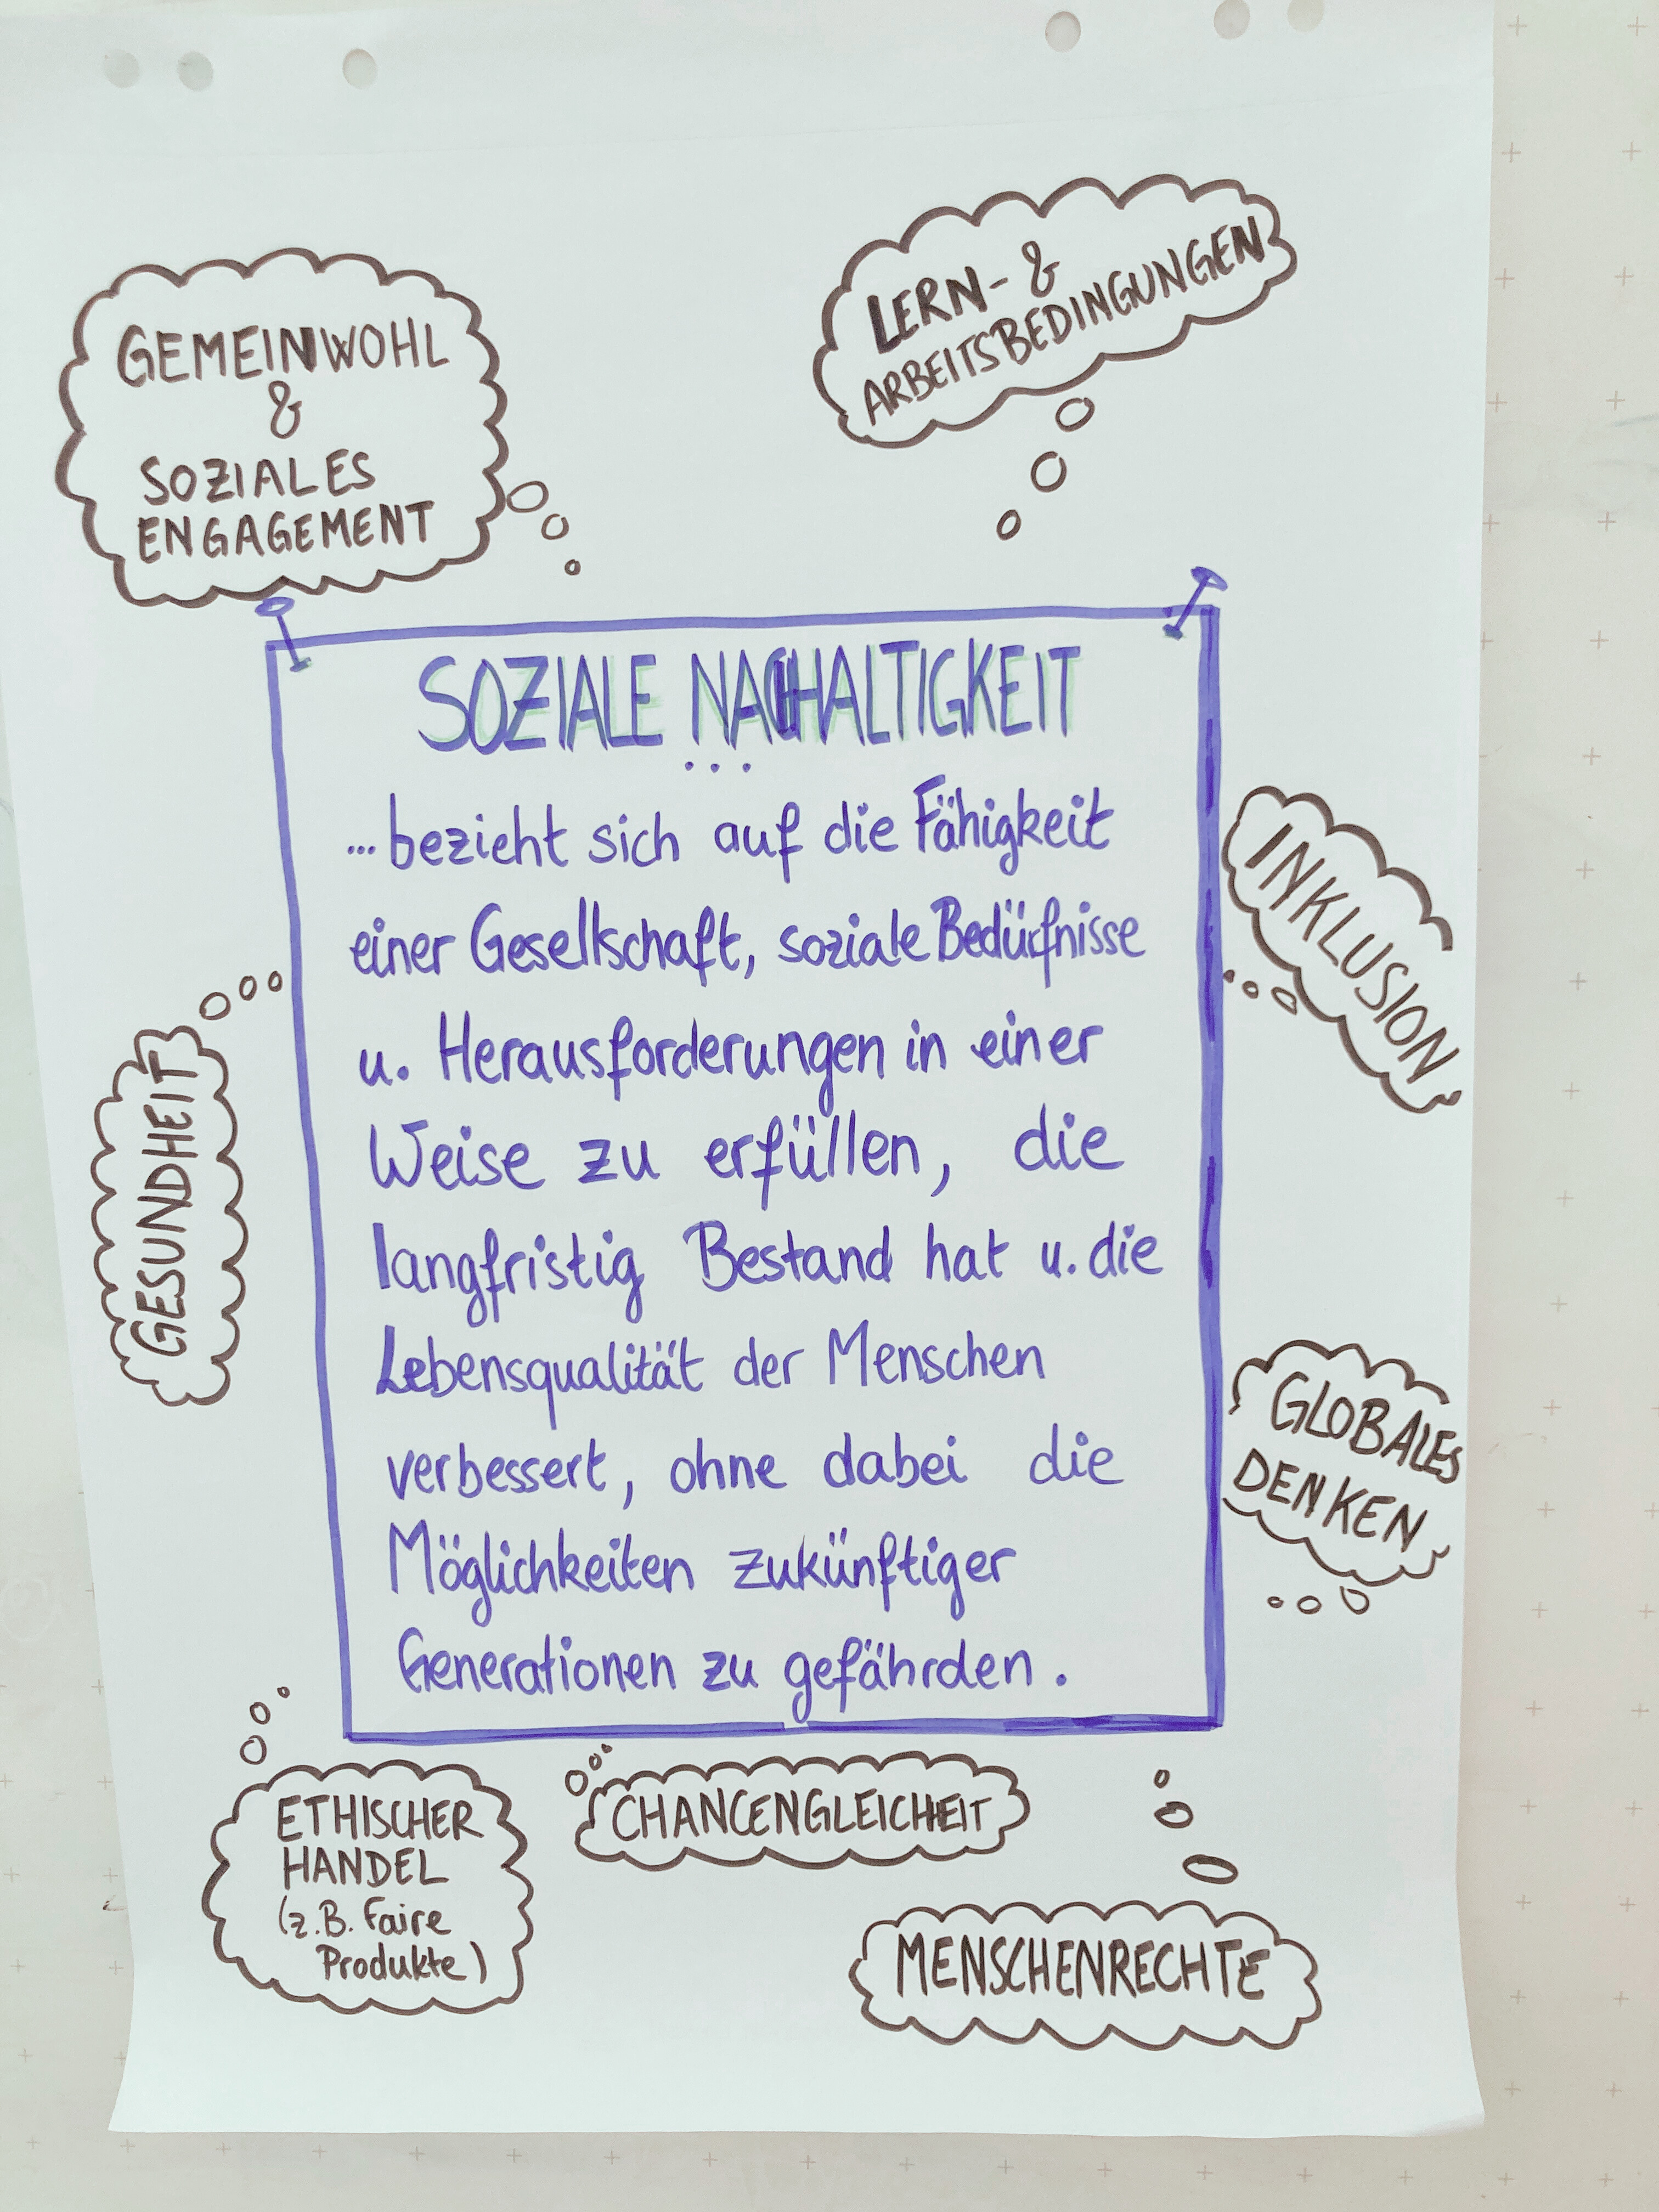 GEMEINWOHL
&
SOZIALES
ENGAGEMENT
LERN- &
ARBEITSBEDINGUNGEN
SOZIALE NACHHALTIGKEIT
...
...bezieht sich auf die Fähigkeit
einer Gesellschaft, soziale Bedürfnisse
u. Herausforderungen in einer
Weise zu erfüllen, die
langfristig Bestand hat u. die
Lebensqualität der Menschen
verbessert, ohne dabei die
Möglichkeiten zukünftiger
Generationen zu gefährden.
INKLUSION
GESUNDHEIT
GLOBALES
DENKEN
ETHISCHER
HANDEL
(z.B. Faire
Produkte)
CHANCENGLEICHHEIT
MENSCHENRECHTE